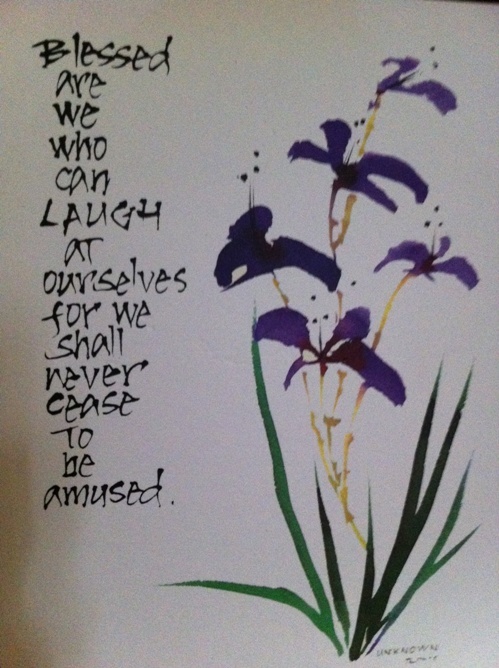 Blessed
are
we
who
can
LAUGH
at
ourselves
for we
shall
never
cease
To
be
amused.
UNKNOWN